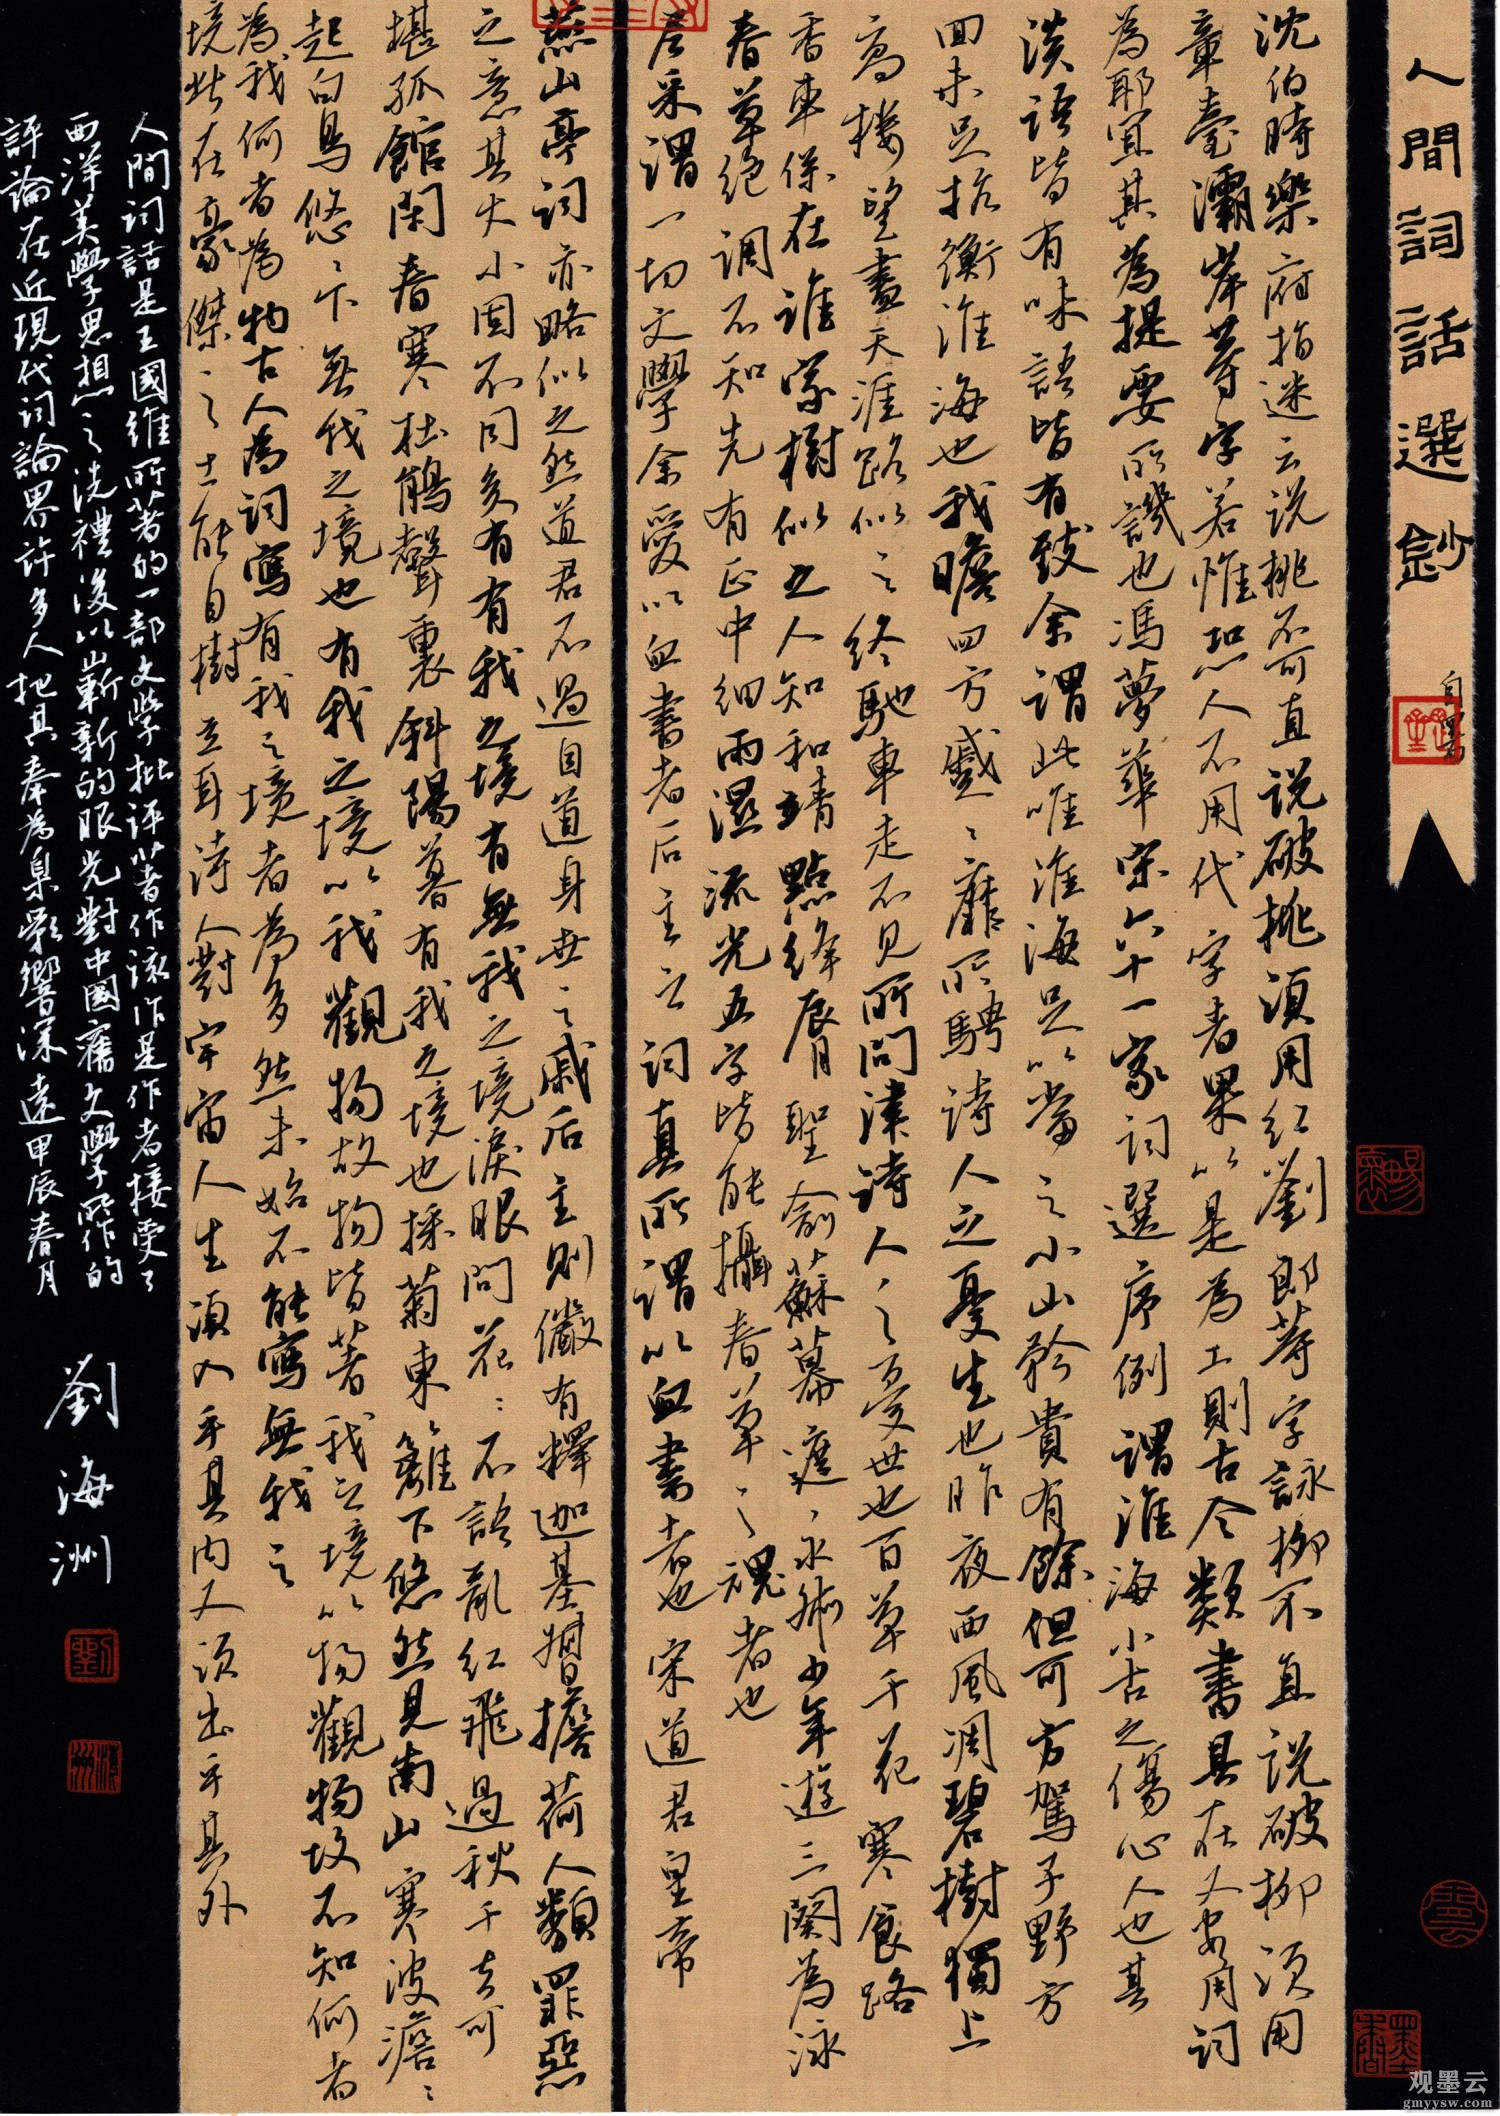 人間詞話選鈔
自署
沈伯時樂府指迷云説桃不可直説破桃須用紅劉郎等字詠柳不直説破柳須用
章臺灞岸等字若惟恐人不用代字者果以是為工則古今類書具在又安用詞
為耶宜其為提要所譏也馮夢華宋六十一家詞選序例謂淮海小古之傷心人也其
淡語皆有味語皆有致余謂此唯淮海足以當之小山矜貴有餘但可方駕子野方
回未足抗衡淮海也我瞻四方蹙〻靡所騁詩人之憂生也昨夜西風凋碧樹獨上
高樓望盡天涯路似之終馳車走不見所問津詩人之憂世也百草千花寒食路
香車係在誰家樹似之人知和靖點絳脣聖俞蘇幕遮永叔少年遊三闋為詠
春草絕調不知先有正中細雨濕流光五字皆能攝春草之魂者也
尼采謂一切文學余愛以血書者后主之詞真所謂以血書者也宋道君皇帝
燕山亭詞亦略似之然道君不過自道身世之戚后主則儼有釋迦基督擔荷人類罪惡
之意其大小固不同矣有有我之境有無我之境淚眼問花〻不語亂紅飛過秋千去可
堪孤館閉春寒杜鵑聲裏斜陽暮有我之境也採菊東籬下悠然見南山寒波澹〻
起白鳥悠〻下無我之境也有我之境以我觀物故物皆著我之境以物觀物故不知何者
為我何者為物古人為詞寫有我之境者為多然未始不能寫無我之
境此在豪傑之士能自樹立耳詩人對宇宙人生須入乎其内又須出乎其外
人間詞話是王國維所著的一部文學批评著作该作是作者接受了
西洋美學思想之洗禮後以嶄新的眼光對中國舊文學所作的
評論在近現代詞論界許多人把其奉為臬影響深遠甲辰春月
劉海洲
观墨云
gmyysw.com